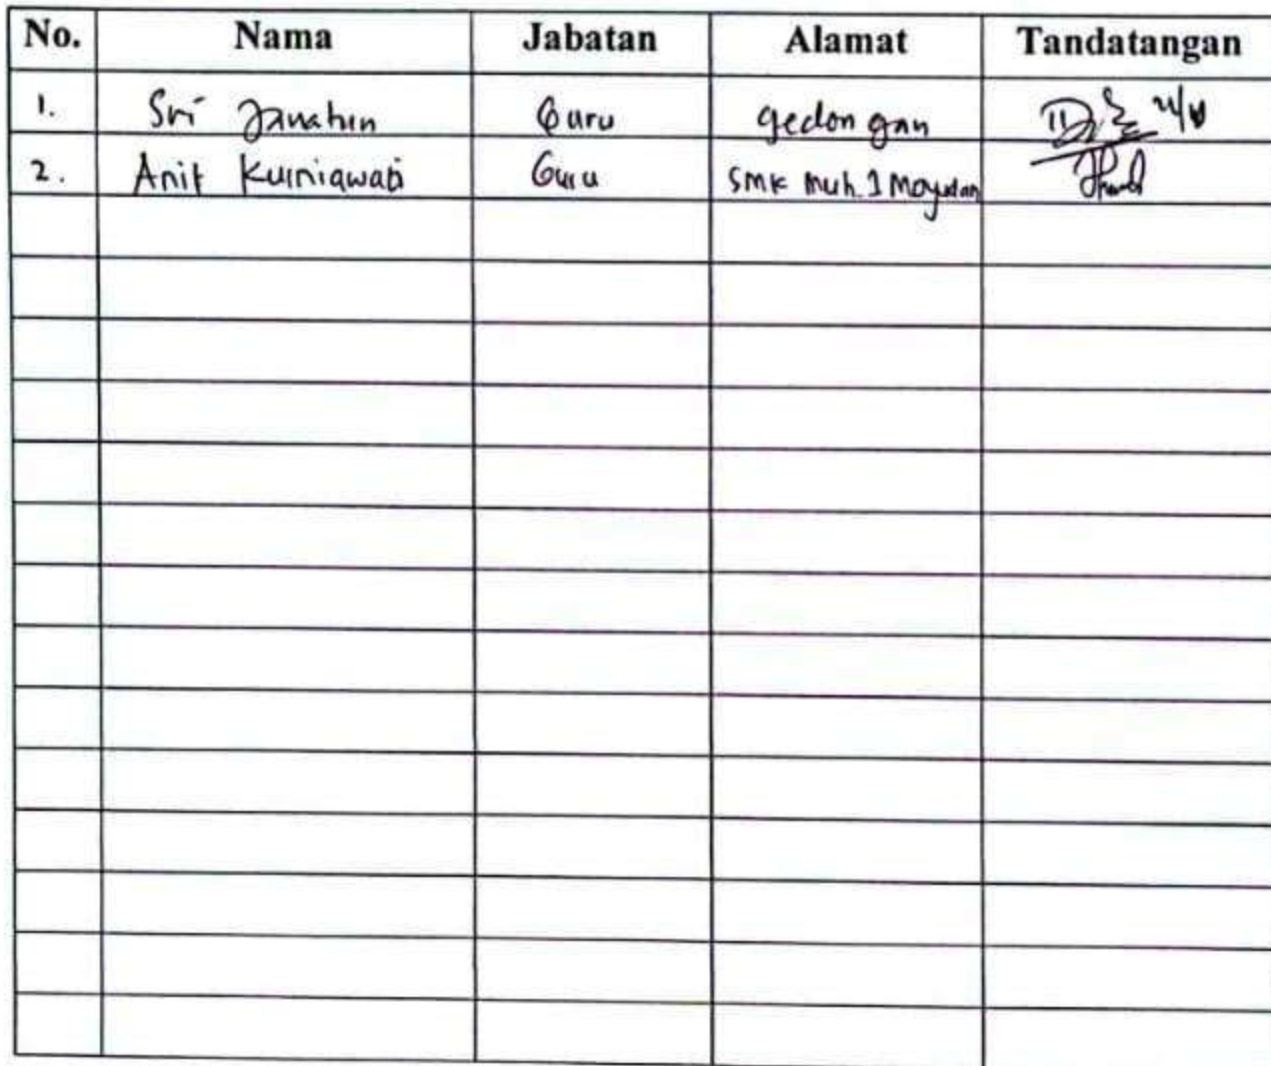 No. Nama Jabatan Alamat Tandatangan
1. Sri Guru gedongan
2. Anik Kurniawati Guru SMK Muh. 1 Moyudan